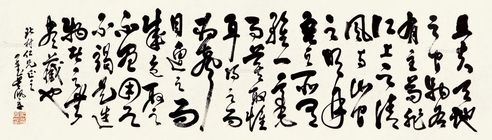 且夫天地
之間物各
有主苟非
江上之清
風與山間
之明月
吾之所有
雖一毫
而莫取惟
耳得之而
為聲
目遇之而
成色取之
不禁用之
不竭是造
物者之無
盡藏也